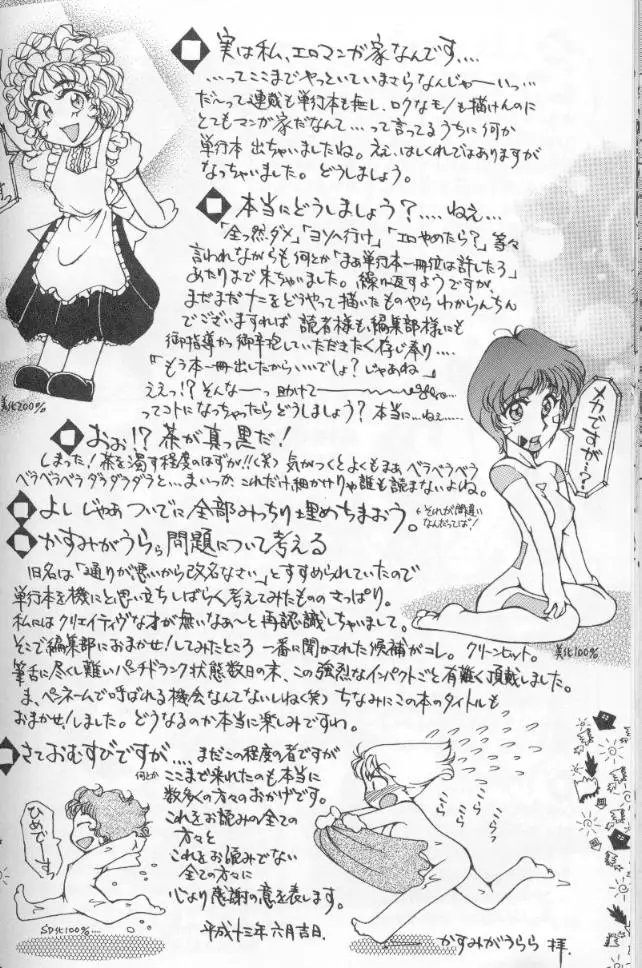 実は私、エロマンガ家なんです....
...ってここまでやっといていまさらなんじゃーいっ...
だ〜って連載も単行本も無し、ロクなモノも描けんのに
とてもマンガ家だなんて...って言ってるうちに何か
単行本出ちゃいましたね。ええ、はしくれではありますが
なっちゃいました。どうしましょう。
本当にどうしましょう?....ねえ...
「全っ然ダメ」「ヨソへ行け」「エロやめたら?」等々
言われながらも何とか「まあ単行本一冊位は許したろ」
あたりまで来ちゃいました。繰り返すようですが、
まだまだナニをどうやって描いたものやらわからんちん
でございますれば、読者様も編集部様にも
御指導かつ御辛抱していただきたく存じ奉り....
「もう本一冊出したからいいでしょ?じゃあね」
ええっ!?そんなーっ助けて
ってコトになっちゃったらどうしましょう?本当に...ねえ......
美化200%
メカですが...?
美化100%
おお!?茶が真っ黒だ!
しまった!茶を濁す程度のはずが!!(笑)気がつくとよくもまぁベラベラベラ
ベラベラベラダラダラダラと...まいっか、これだけ細かけりゃ誰も読まないよね。
よしじゃあついでに全部みっちり埋めちまおう。
←それが間違い
なんだってば!
かすみがうらら問題について考える
旧名は「通りが悪いから改名なさい」とすすめられていたので
単行本を機にと思い立ちしばらく考えてみたもののさっぱり。
私にはクリエイティヴな才が無いなあ〜と再認識しちゃいまして。
そこで編集部におまかせ!してみたところ一番に聞かされた候補がコレ。クリーンヒット。
筆舌に尽くし難いパンチドランク状態数日の末、この強烈なインパクトごと有難く頂戴しました。
ま、ペンネームで呼ばれる機会なんてないしね(笑)ちなみにこの本のタイトルも
おまかせ!しました。どうなるのか本当に楽しみですわ。
さておむすびですが....まだこの程度の者ですが
何とかここまで来れたのも本当に
数多くの方々のおかげです。
これをお読みの全ての
方々と
これをお読みでない
全ての方々に
心より感謝の意を表します。
平成十三年六月吉日.
かすみがうらら 拝.
ひめです
SD化100%....